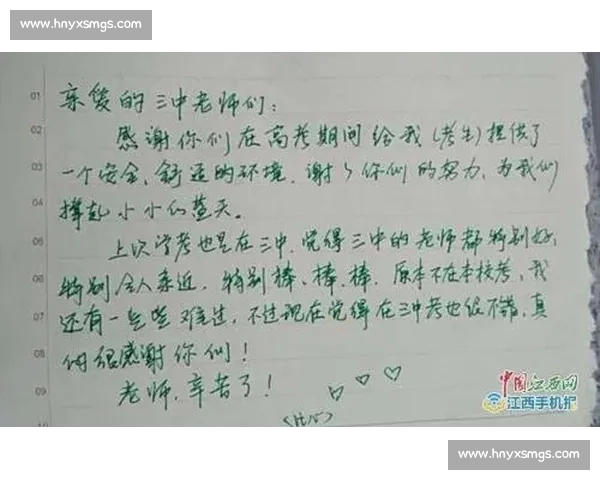 www.hnyxsmgs.com
01
亲爱的三中老师们：
02
感谢你们在高考期间给我(考生)提供了
03
一个安全、舒适的环境.谢谢你们的努力,为我们
04
撑起小小的蓝天。
05
上次学考也是在三中.觉得三中的老师都特别好,
06
特别令人亲近,特别棒、棒、棒.原本不在本校考,我
07
还有一些些难过,不过现在觉得在三中考也很不错,真
08
的很感谢你们!
09
老师,辛苦了! ♡ ♡ ♡
(比心)
中国江西网
江西手机报
www.hnyxsmgs.com
www.hnyxsmgs.com